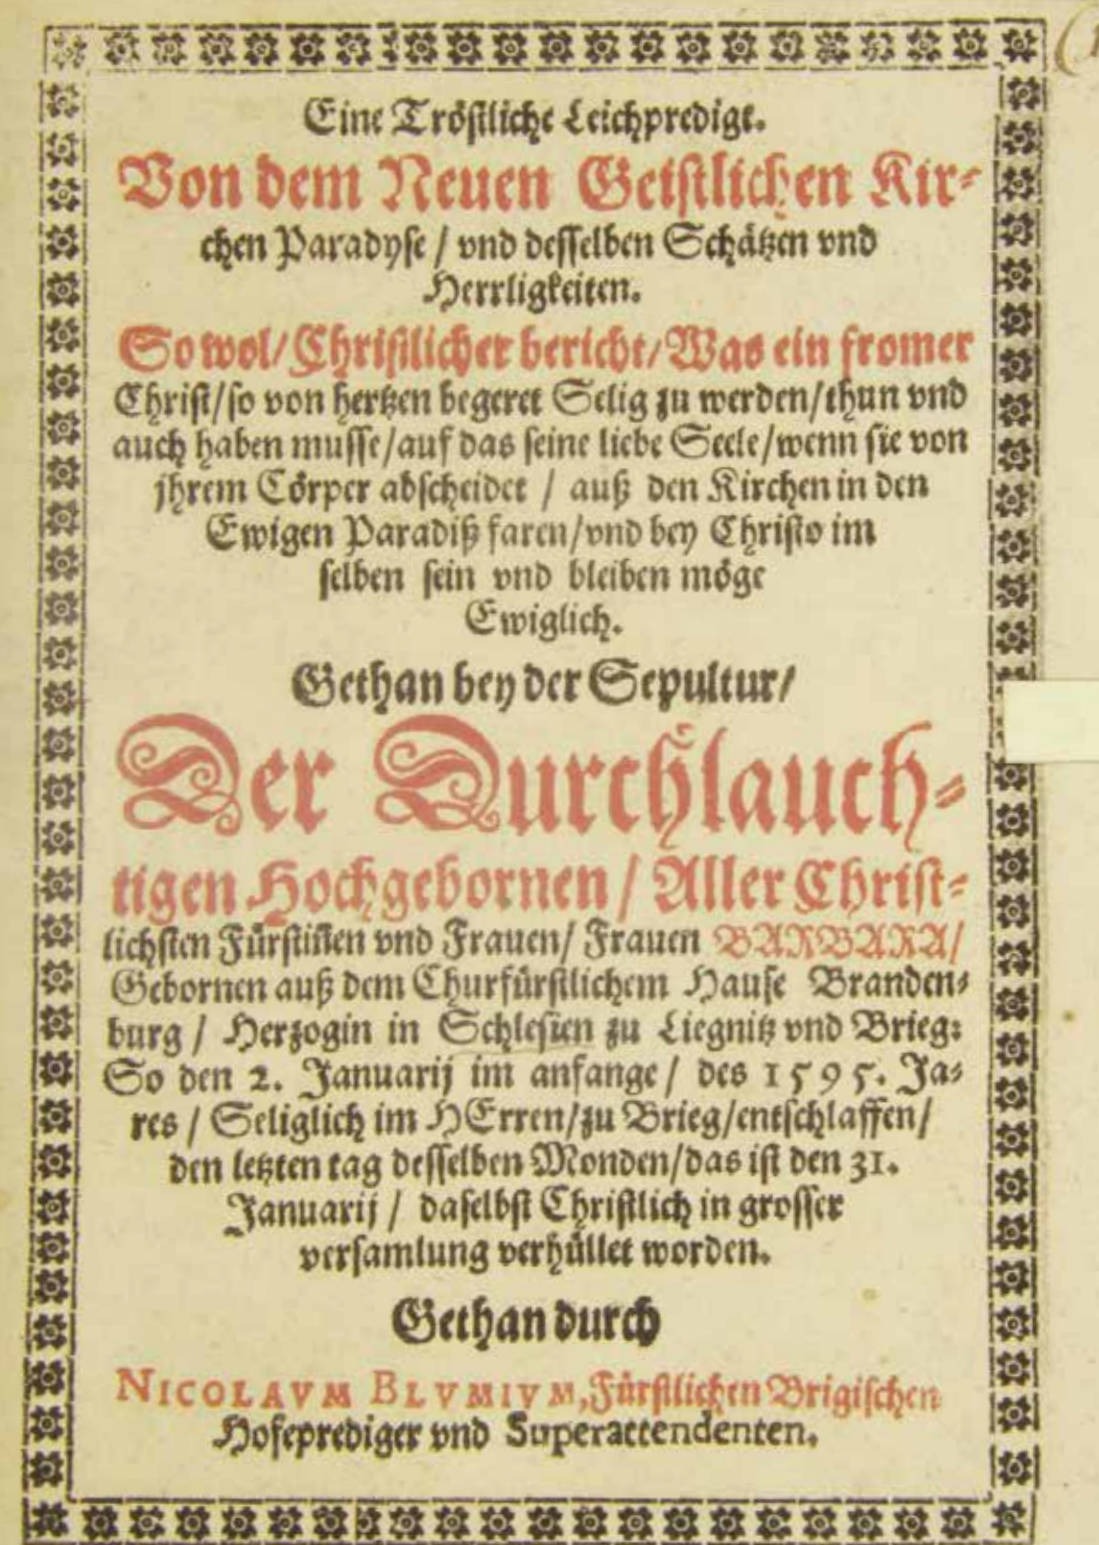 Eine Tröstliche Leichpredigt.
Von dem Neuen Geistlichen Kir-
chen Paradyse / vnd desselben Schätzen vnd
Herrligkeiten.
So wol/Christlicher bericht/Was ein fromer
Christ/so von hertzen begeret Selig zu werden/thun vnd
auch haben musse/auf das seine liebe Seele/wenn sie von
jhrem Cörper abscheidet / auß den Kirchen in den
Ewigen Paradiß faren/vnd bey Christo im
selben sein vnd bleiben möge
Ewiglich.
Gethan bey der Sepultur/
Der Durchlauch-
tigen Hochgebornen / Aller Christ-
lichsten Fürstiñen vnd Frauen/ Frauen BARBARA/
Gebornen auß dem Churfürstlichem Hause Branden-
burg / Herzogin in Schlesien zu Liegnitz vnd Brieg:
So den 2. Januarij im anfange / des 1595. Ja-
res / Seliglich im HErren/zu Brieg/entschlaffen/
den letzten tag desselben Monden/das ist den 31.
Januarij / daselbst Christlich in grosser
versamlung verhüllet worden.
Gethan durch
NICOLAVM BLVMIVM, Fürstlichen Brigischen
Hofeprediger vnd Superattendenten.